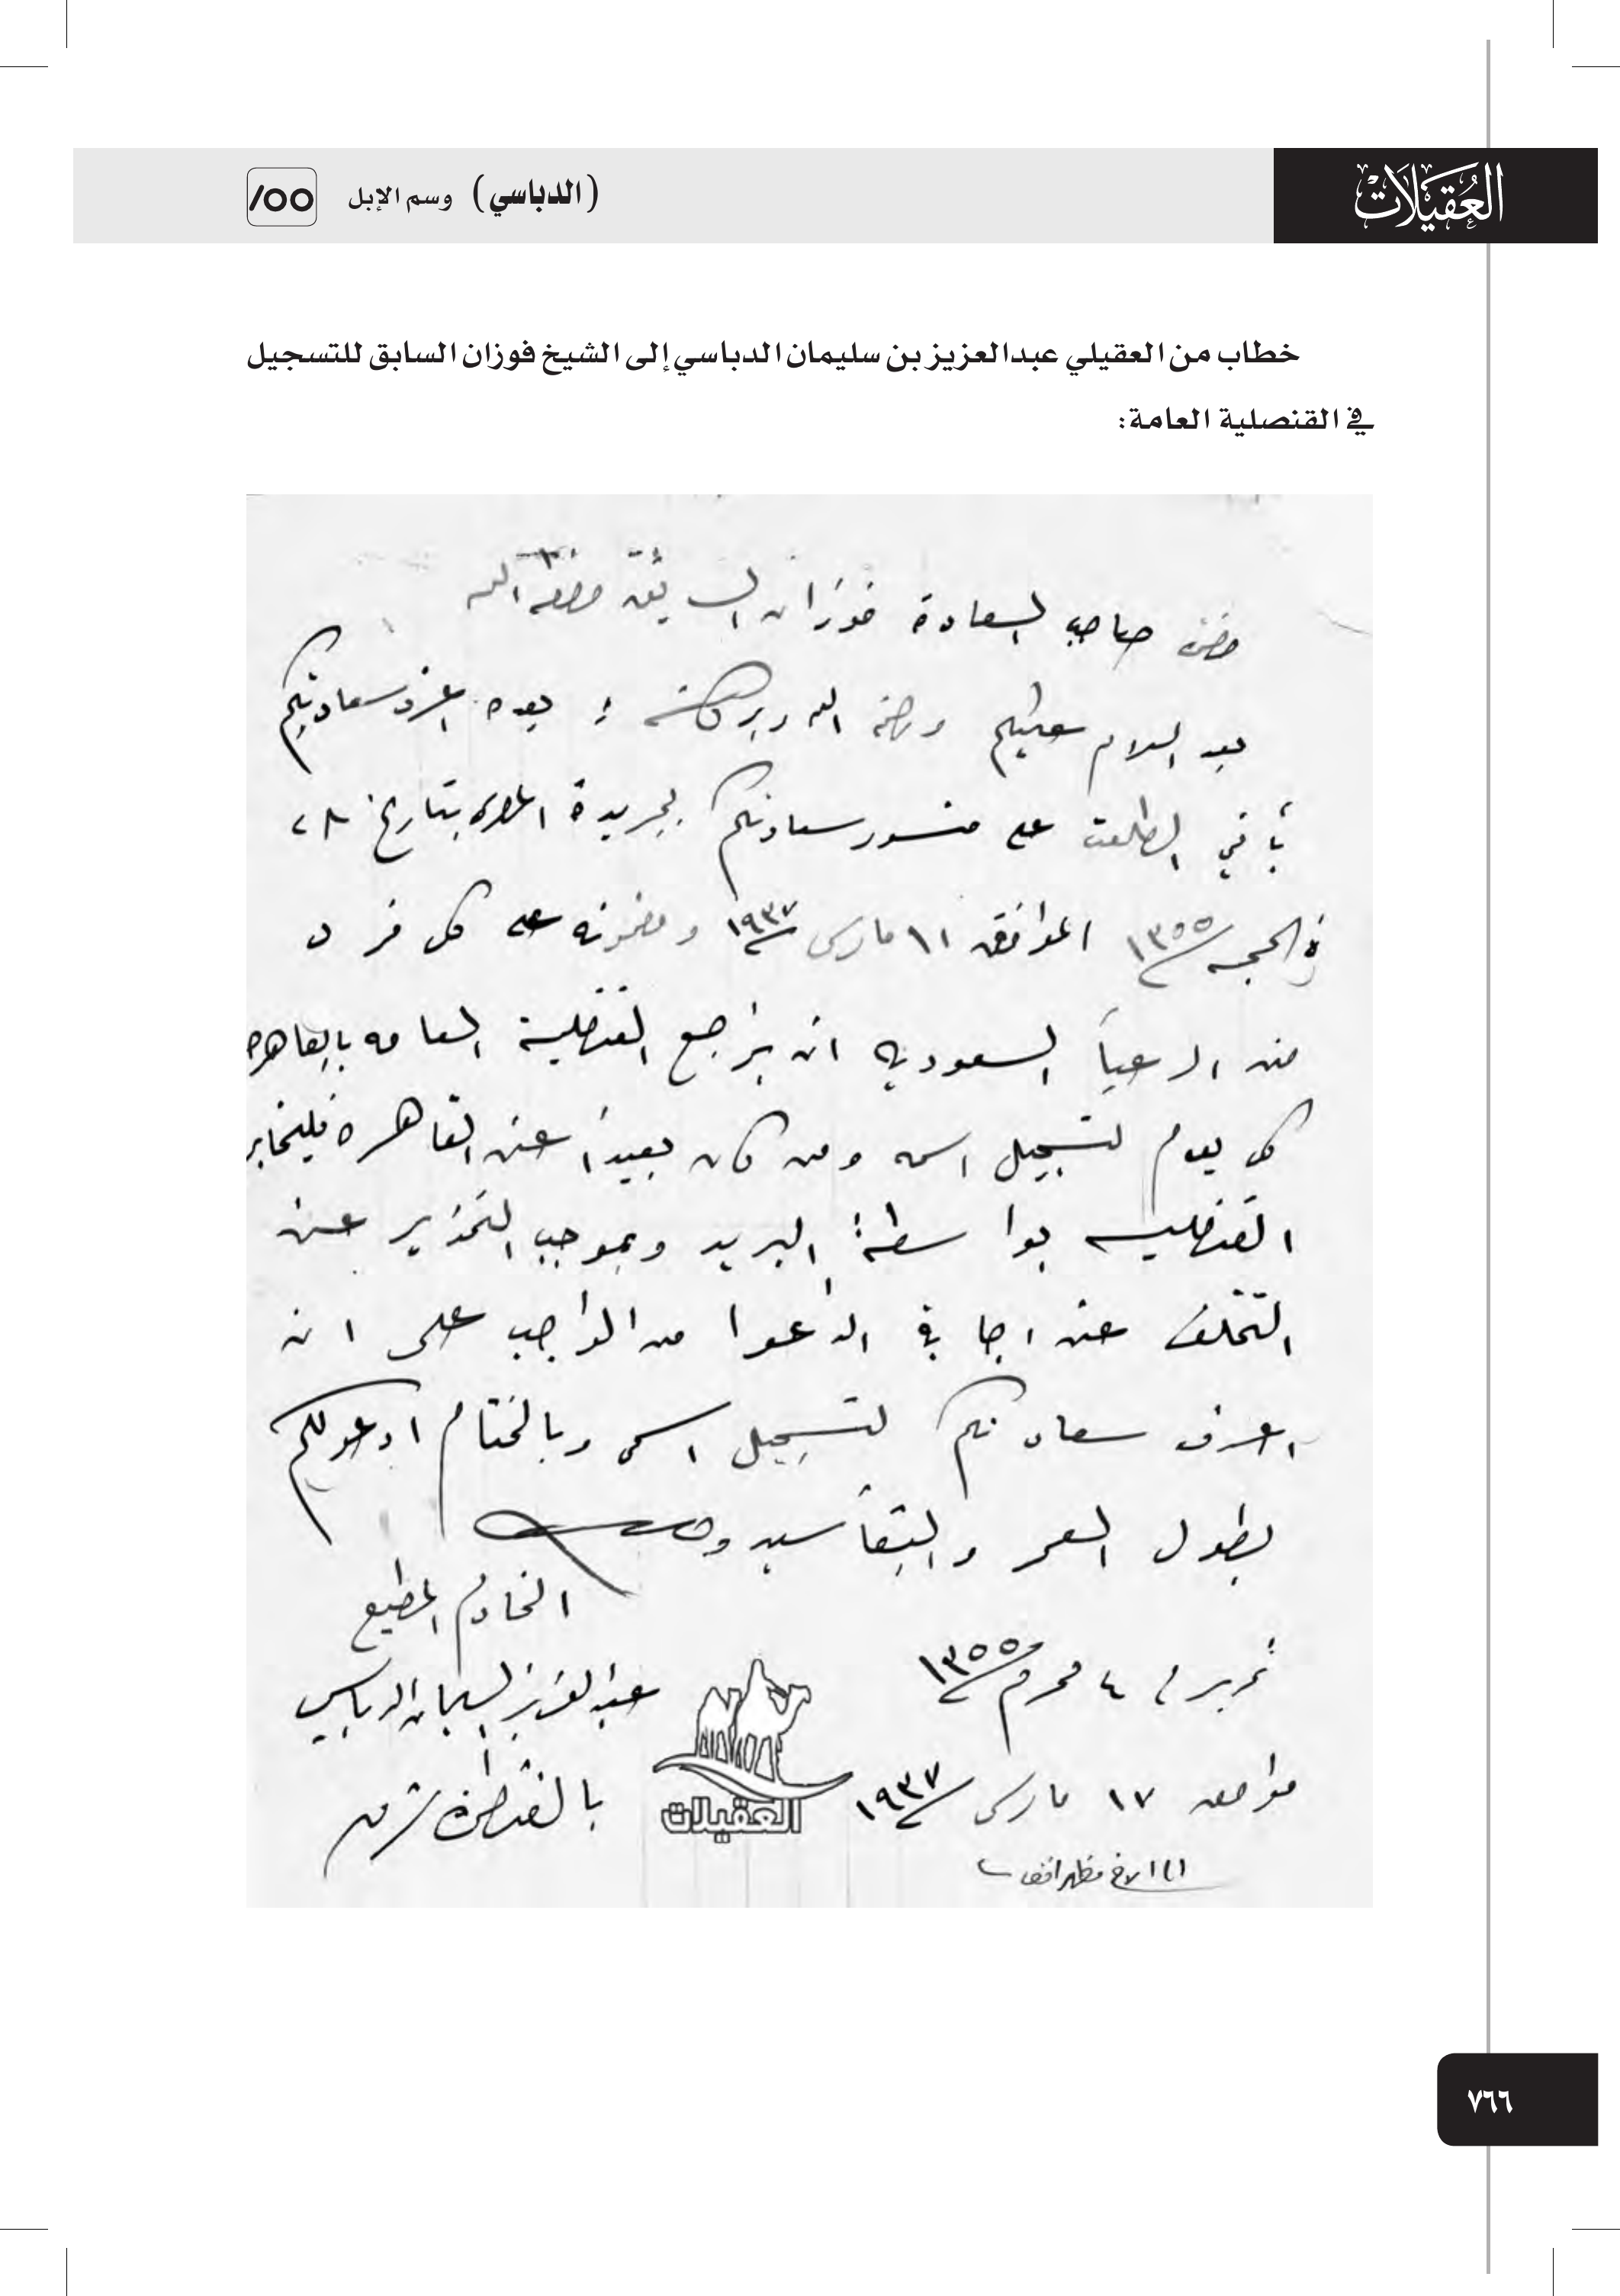 العُقيلات
(الدباسي) وسم الإبل
خطاب من العقيلي عبدالعزيز بن سليمان الدباسي إلى الشيخ فوزان السابق للتسجيل
في القنصلية العامة:
حضرة صاحب السعادة فوزان السابق حفظه الله
بعد السلام عليكم ورحمة الله وبركاته بعده اعرف سعادتكم
بأني اطلعت على منشور سعادتكم بجريدة المصري بتاريخ ٢٨
ذي الحجه ١٣٥٥ الموافق ١١ مارس ١٩٣٧ ومضمونه على كل فرد
من الرعيا السعوديه ان يراجع القنصلية العامه بالقاهره
كل يوم لتسجيل اسمه ومن كان بعيدا عن القاهره فليخابر
القنصليه بواسطة البريد وبموجب التحذير عن
التخلف عن اجابة الداعوا من الواجب على ان
اعرف سعادتكم لتسجيل اسمي وبالختام ادعو لكم
بطول العمر والبقا سيدي
الخادم المطيع
تحريرا في ٤ محرم ١٣٥٥
عبد العزيز السليمان الدباسي
موافق ١٧ مارس ١٩٣٧
بالقنطرة شرق
العقيلات
الاخ مظهر افندي
٧٦٦